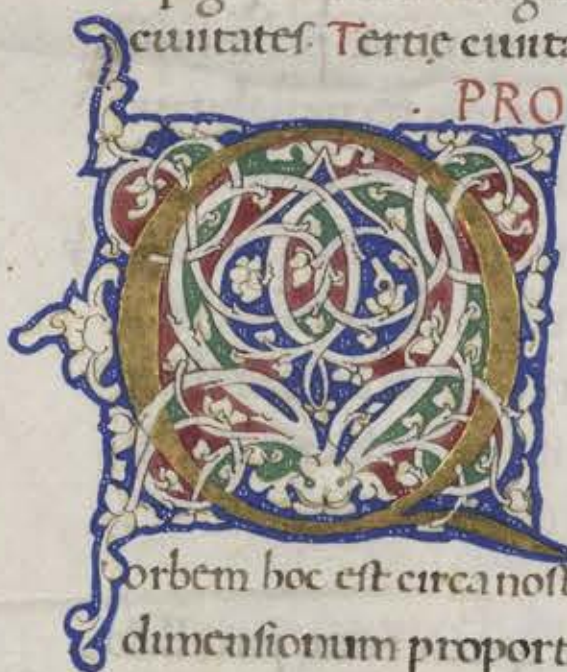 ciuitates. Tertie ciuita
. PRO
Q
orbem hoc est circa nost
dimensionum proport